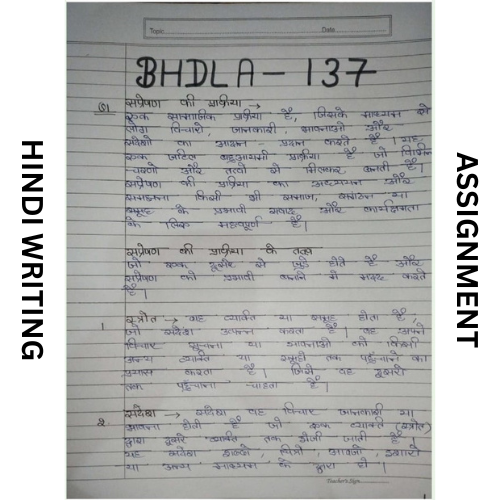 HINDI WRITING
ASSIGNMENT
Topic
Date
BHDLA - 137
Q1 संप्रेषण की प्रक्रिया →
एक सामाजिक प्रक्रिया है, जिसके माध्यम से
लोग विचारों, जानकारी, भावनाओं और
संदेशों का आदान - प्रदान करते हैं। यह
एक जटिल बहुआयामी प्रक्रिया है जो विभिन्न
चरणों और तत्वों से मिलकर बनती है।
संप्रेषण की प्रक्रिया का अध्ययन और
समझना किसी भी समाज, संगठन या
समूह के प्रभावी संवाद और कार्यक्षमता
के लिए महत्वपूर्ण है।
संप्रेषण की प्रक्रिया के तत्व
जो एक दूसरे से जुड़े होते हैं और
संप्रेषण को प्रभावी बनाने में मदद करते
हैं।
1 स्त्रोत → वह व्यक्ति या समूह होता है,
जो संदेश उत्पन्न करता है। वह अपने
विचार सूचना या भावनाओं को किसी
अन्य व्यक्ति या समूहों तक पहुँचाने का
प्रयास करता है। जिसे वह दूसरों
तक पहुँचाना चाहता है।
2. संदेश → संदेश वह विचार जानकारी या
भावना होती है जो एक व्यक्ति (स्त्रोत)
द्वारा दूसरे व्यक्ति तक भेजी जाती है।
यह संदेश शब्दों, चित्रों, आवाजों, इशारों
या अन्य माध्यम के द्वारा हो।
Teacher's Sign